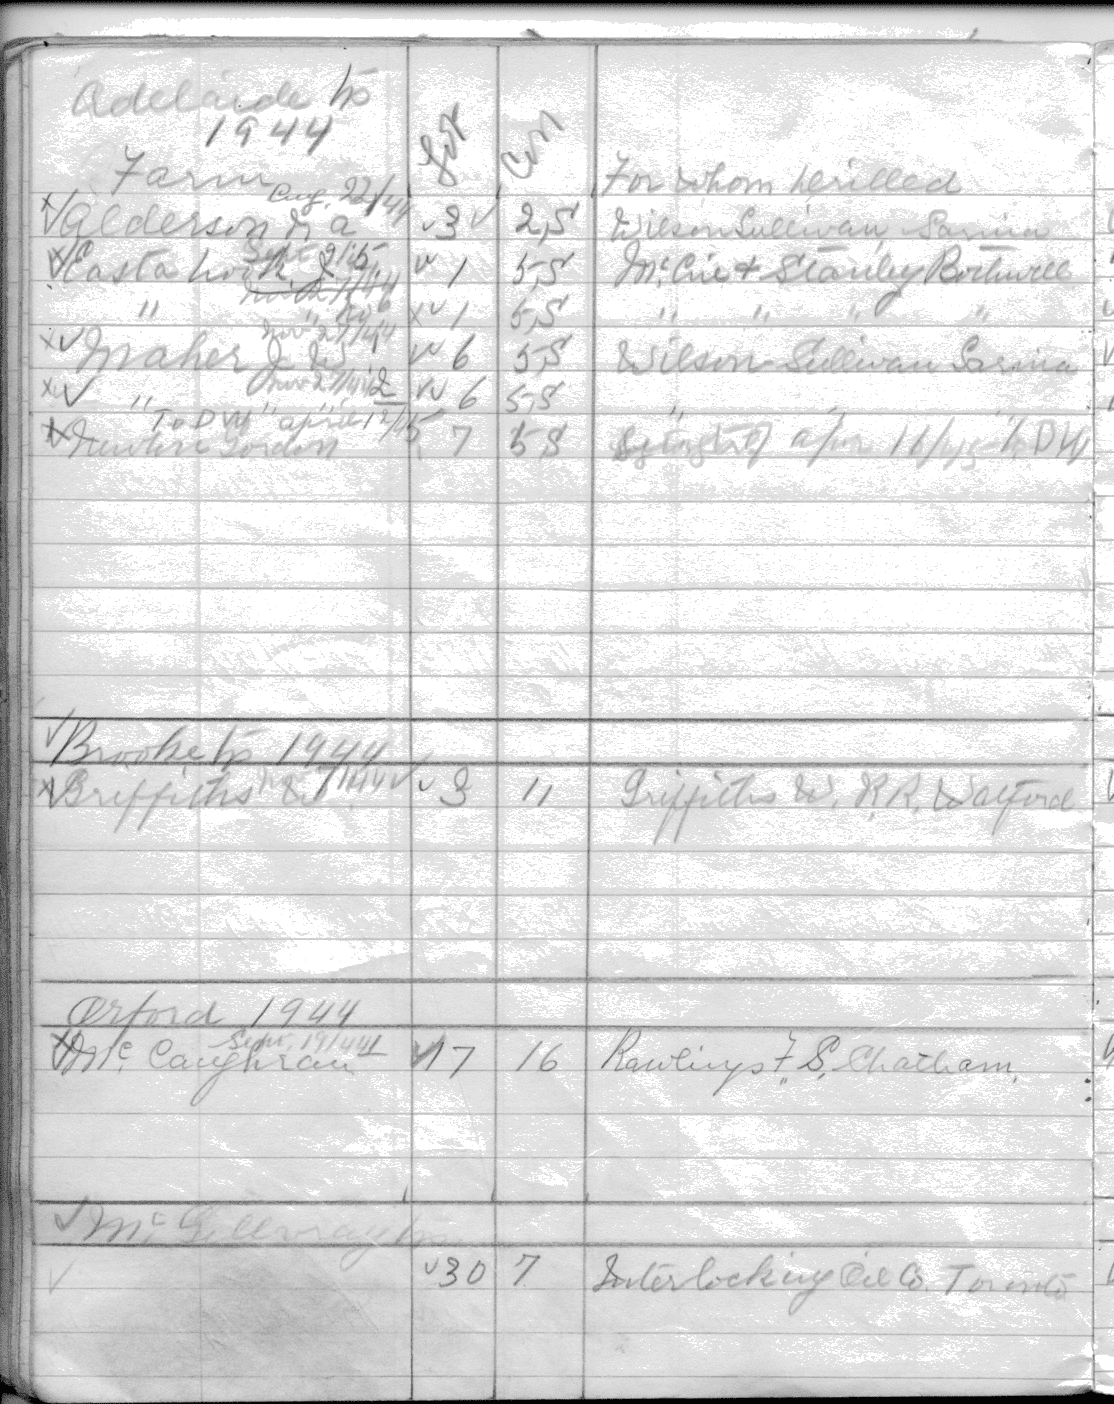 Adelaide Tp
1944
Farm Lot Con For whom Drilled
Aug. 22/44
x✓ Alderson & A ✓3✓ 2,S Wilson Sullivan Sarnia
Sept 21
x✓ Easta ✓✓ 1 5,S McCue & Stanley Bothwell
Nov 21/44
" No x✓1 5,S " " " "
Nov 21/44
x✓ Maher J W 1 ✓✓ 6 5,S Wilson Sullivan Sarnia
x✓ " 2 ✓✓ 6 5,S " " "
To D W April 12/45
x Gordon 7 5 S 16/45 To D W
✓ Brooke Tp 1944
x✓ Griffiths W 7/44✓ ✓3 11 Griffiths W. R.R. Watford
Orford 1944
Sept, 19/44 1
x✓ McCaughran ✓17 16 Rawlings F. S. Chatham.
✓ McGillivray Tp
✓ ✓30 7 Interlocking Oil Co. Toronto